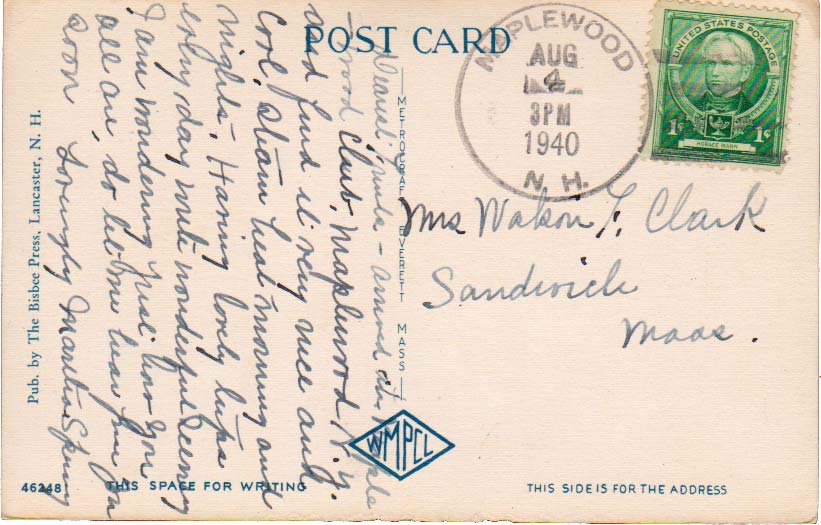 POST CARD
MAPLEWOOD
AUG
4
3PM
1940
N. H.
UNITED STATES POSTAGE
1¢ 1¢
HORACE MANN
arrived at Maple
wood Club, Maplewood
and find it very nice and
cool, steam heat morning and
nights. Having lovely trips
every day with wonderful scenery
I am wondering just how you
all are, do let me hear from you
soon Lovingly Martha
Mrs Watson F. Clark
Sandwich
Mass.
METROCRAFT EVERETT MASS
Pub. by The Bisbee Press, Lancaster, N. H.
WMPCL
46248
THIS SPACE FOR WRITING
THIS SIDE IS FOR THE ADDRESS